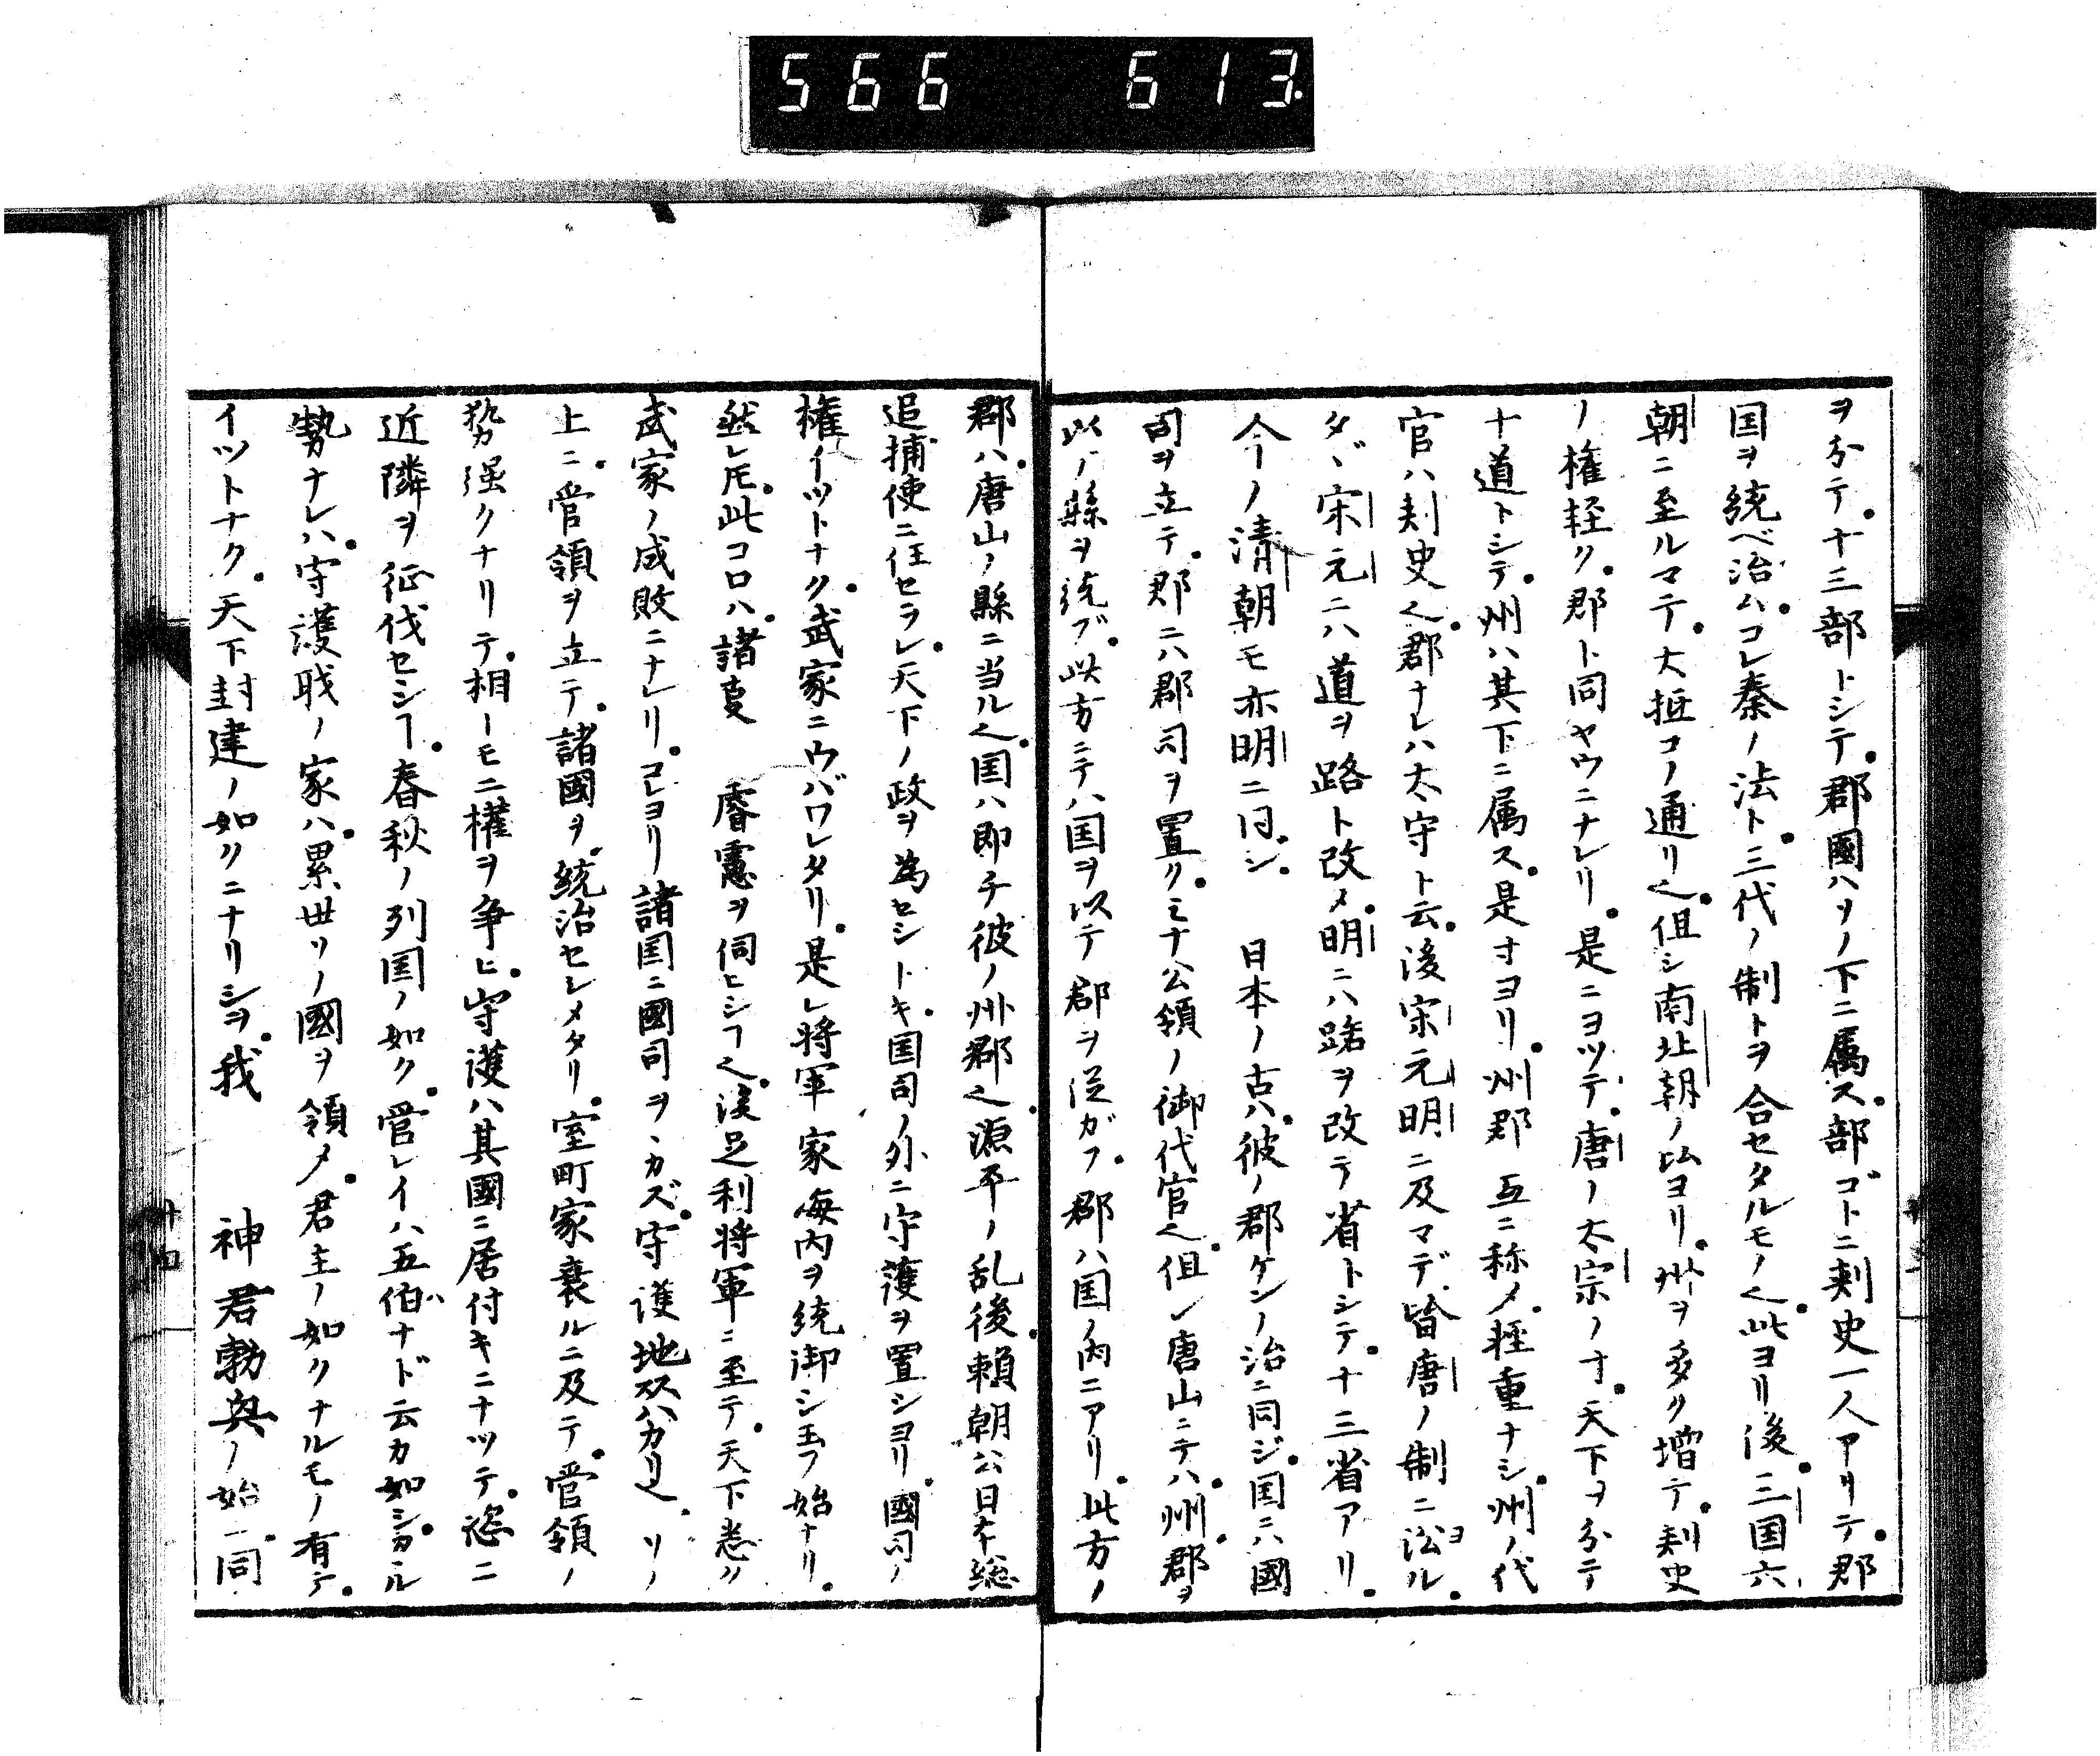 566 613.
ヲ分テ。十三部トシテ。郡國ハソノ下ニ属ス。部ゴトニ刺史一人アリテ。郡
国ヲ統ベ治ム。コレ秦ノ法ト。三代ノ制トヲ合セタルモノ也。此ヨリ後。三国六
朝ニ至ルマテ。大抵コノ通リ也。但シ南北朝ノ比ヨリ。州ヲ多ク増テ。刺史
ノ權軽ク。郡ト同ヤウニナレリ。是ニヨツテ。唐ノ太宗ノ寸。天下ヲ分テ
十道トシテ。州ハ其下ニ属ス。是寸ヨリ。州郡互ニ称メ。軽重ナシ。州ノ代
官ハ刺史也。郡ナレハ太守ト云。後宋元明ニ及マデ。皆唐ノ制ニヨル。
タヾ宋元ニハ道ヲ路ト改メ。明ニハ路ヲ改テ省トシテ。十三省アリ。
今ノ清朝モ亦明ニ同シ。 日本ノ古ハ。彼ノ郡ケンノ治ニ同ジ。国ニハ國
司ヲ立テ。郡ニハ郡司ヲ置ク。ミナ公領ノ御代官也。但シ唐山ニテハ。州郡ヲ
以ノ縣ヲ統ブ。此方ニテハ国ヲ以テ郡ヲ従ガフ。郡ハ国ノ内ニアリ。此方ノ
郡ハ。唐山ノ縣ニ当ル也。国ハ即チ彼ノ州郡也。源平ノ乱後。頼朝公日本総
追捕使ニ任セラレ。天下ノ政ヲ為セシトキ。国司ノ外ニ守護ヲ置シヨリ。國司ノ
權イツトナク。武家ニウバワレタリ。是レ将軍家海内ヲ統御シ玉フ始ナリ。
然レ𪜈。此コロハ。諸㕝 睿慮ヲ伺ヒシヿ也。後足利将軍ニ至テ。天下悉ク
武家ノ成敗ニナレリ。コレヨリ諸国ニ國司ヲヽカズ。守護地頭ハカリ也。ソノ
上ニ。管領ヲ立テ。諸國ヲ。統治セレメタリ。室町家衰ルニ及テ。管領ノ
勢強クナリテ。相トモニ權ヲ争ヒ。守護ハ其國ニ居付キニナツテ。恣ニ
近隣ヲ征伐セシヿ。春秋ノ列国ノ如ク。管レイハ五伯ナド云カ如シ。カヽル
勢ナレハ。守護職ノ家ハ。累世ソノ國ヲ領メ。君主ノ如クナルモノ有テ。
イツトナク。天下封建ノ如クニナリシヲ。我 神君勃興ノ始一同